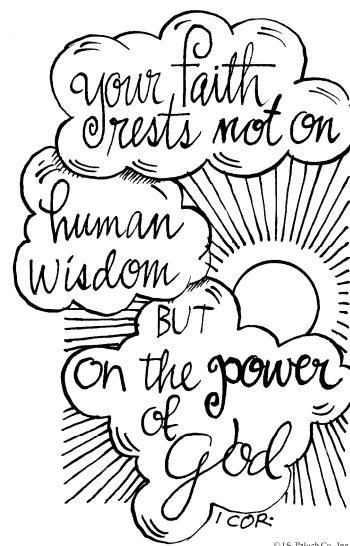 your faith
rests not on
human
wisdom
BUT
on the power
of
God
I COR.
© J.S. Paluch Co., Inc.